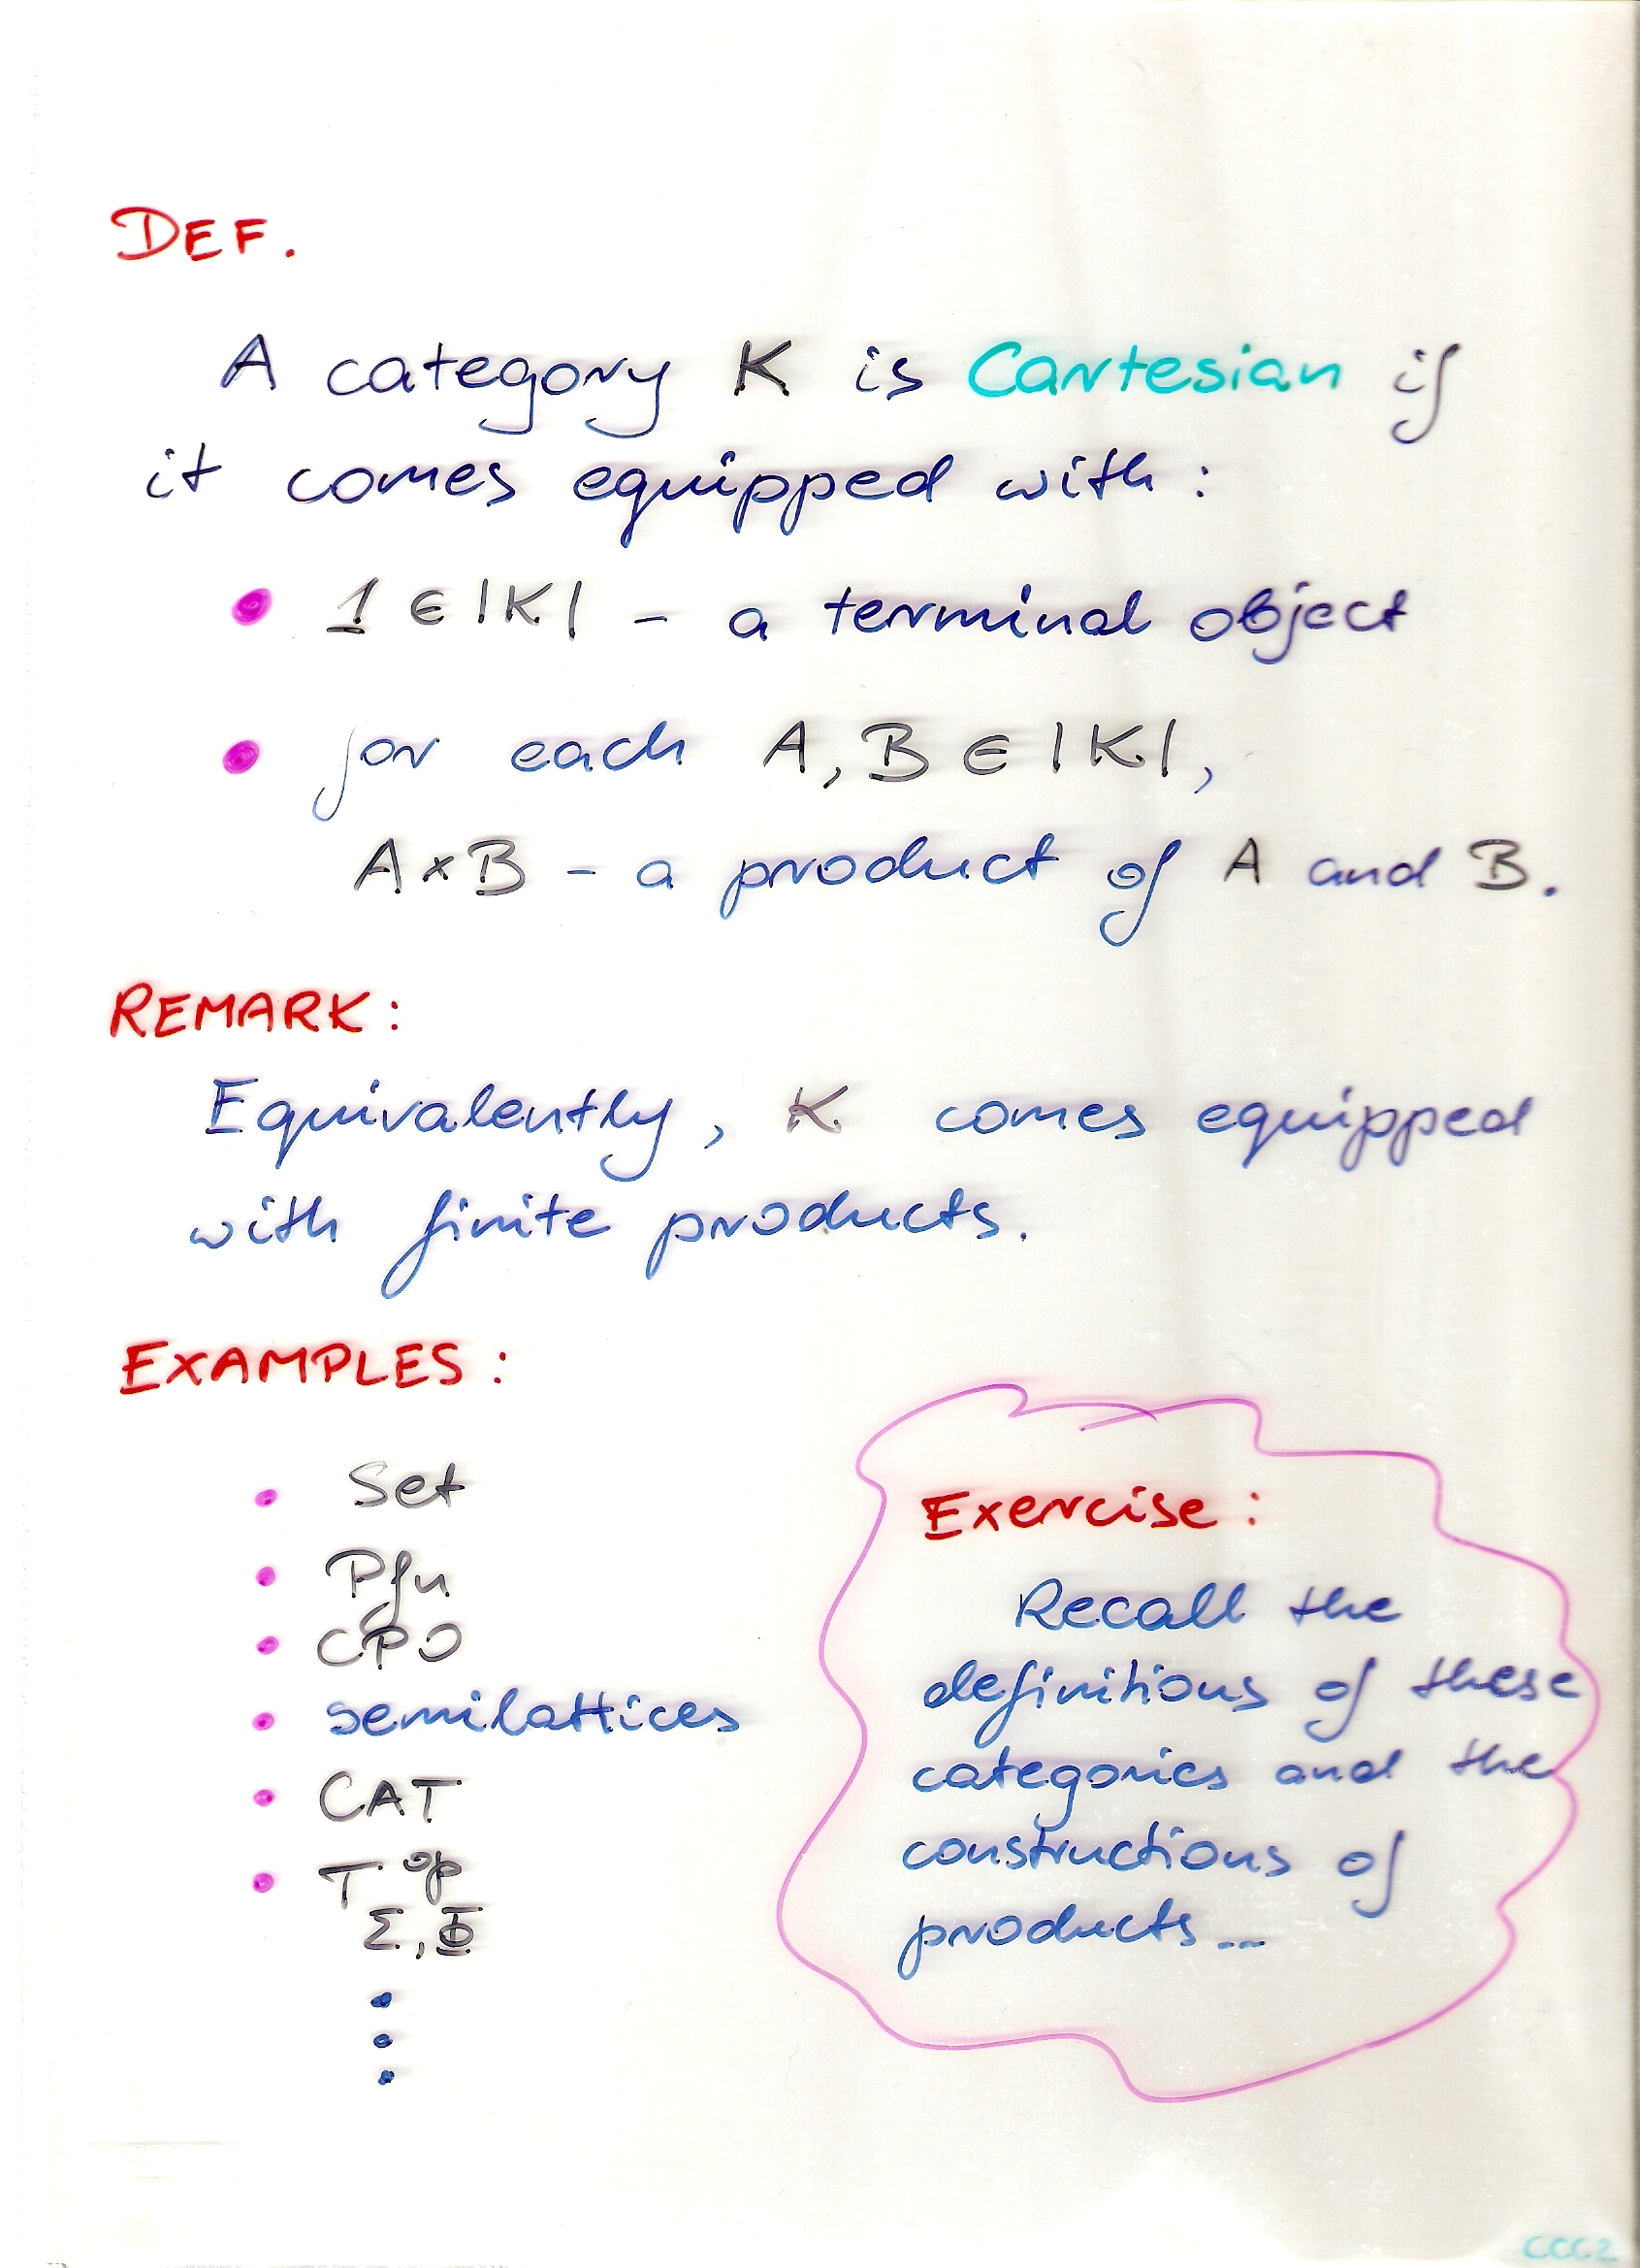 DEF.
A category K is Cartesian if
it comes equipped with:
• 1 ∈ |K| – a terminal object
• for each A, B ∈ |K|,
A×B – a product of A and B.
REMARK:
Equivalently, K comes equipped
with finite products.
EXAMPLES:
• Set
• Pfn
• CPO
• semilattices
• CAT
• T^op_Σ,Φ
⋮
Exercise:
Recall the
definitions of these
categories and the
constructions of
products...
CCC.2